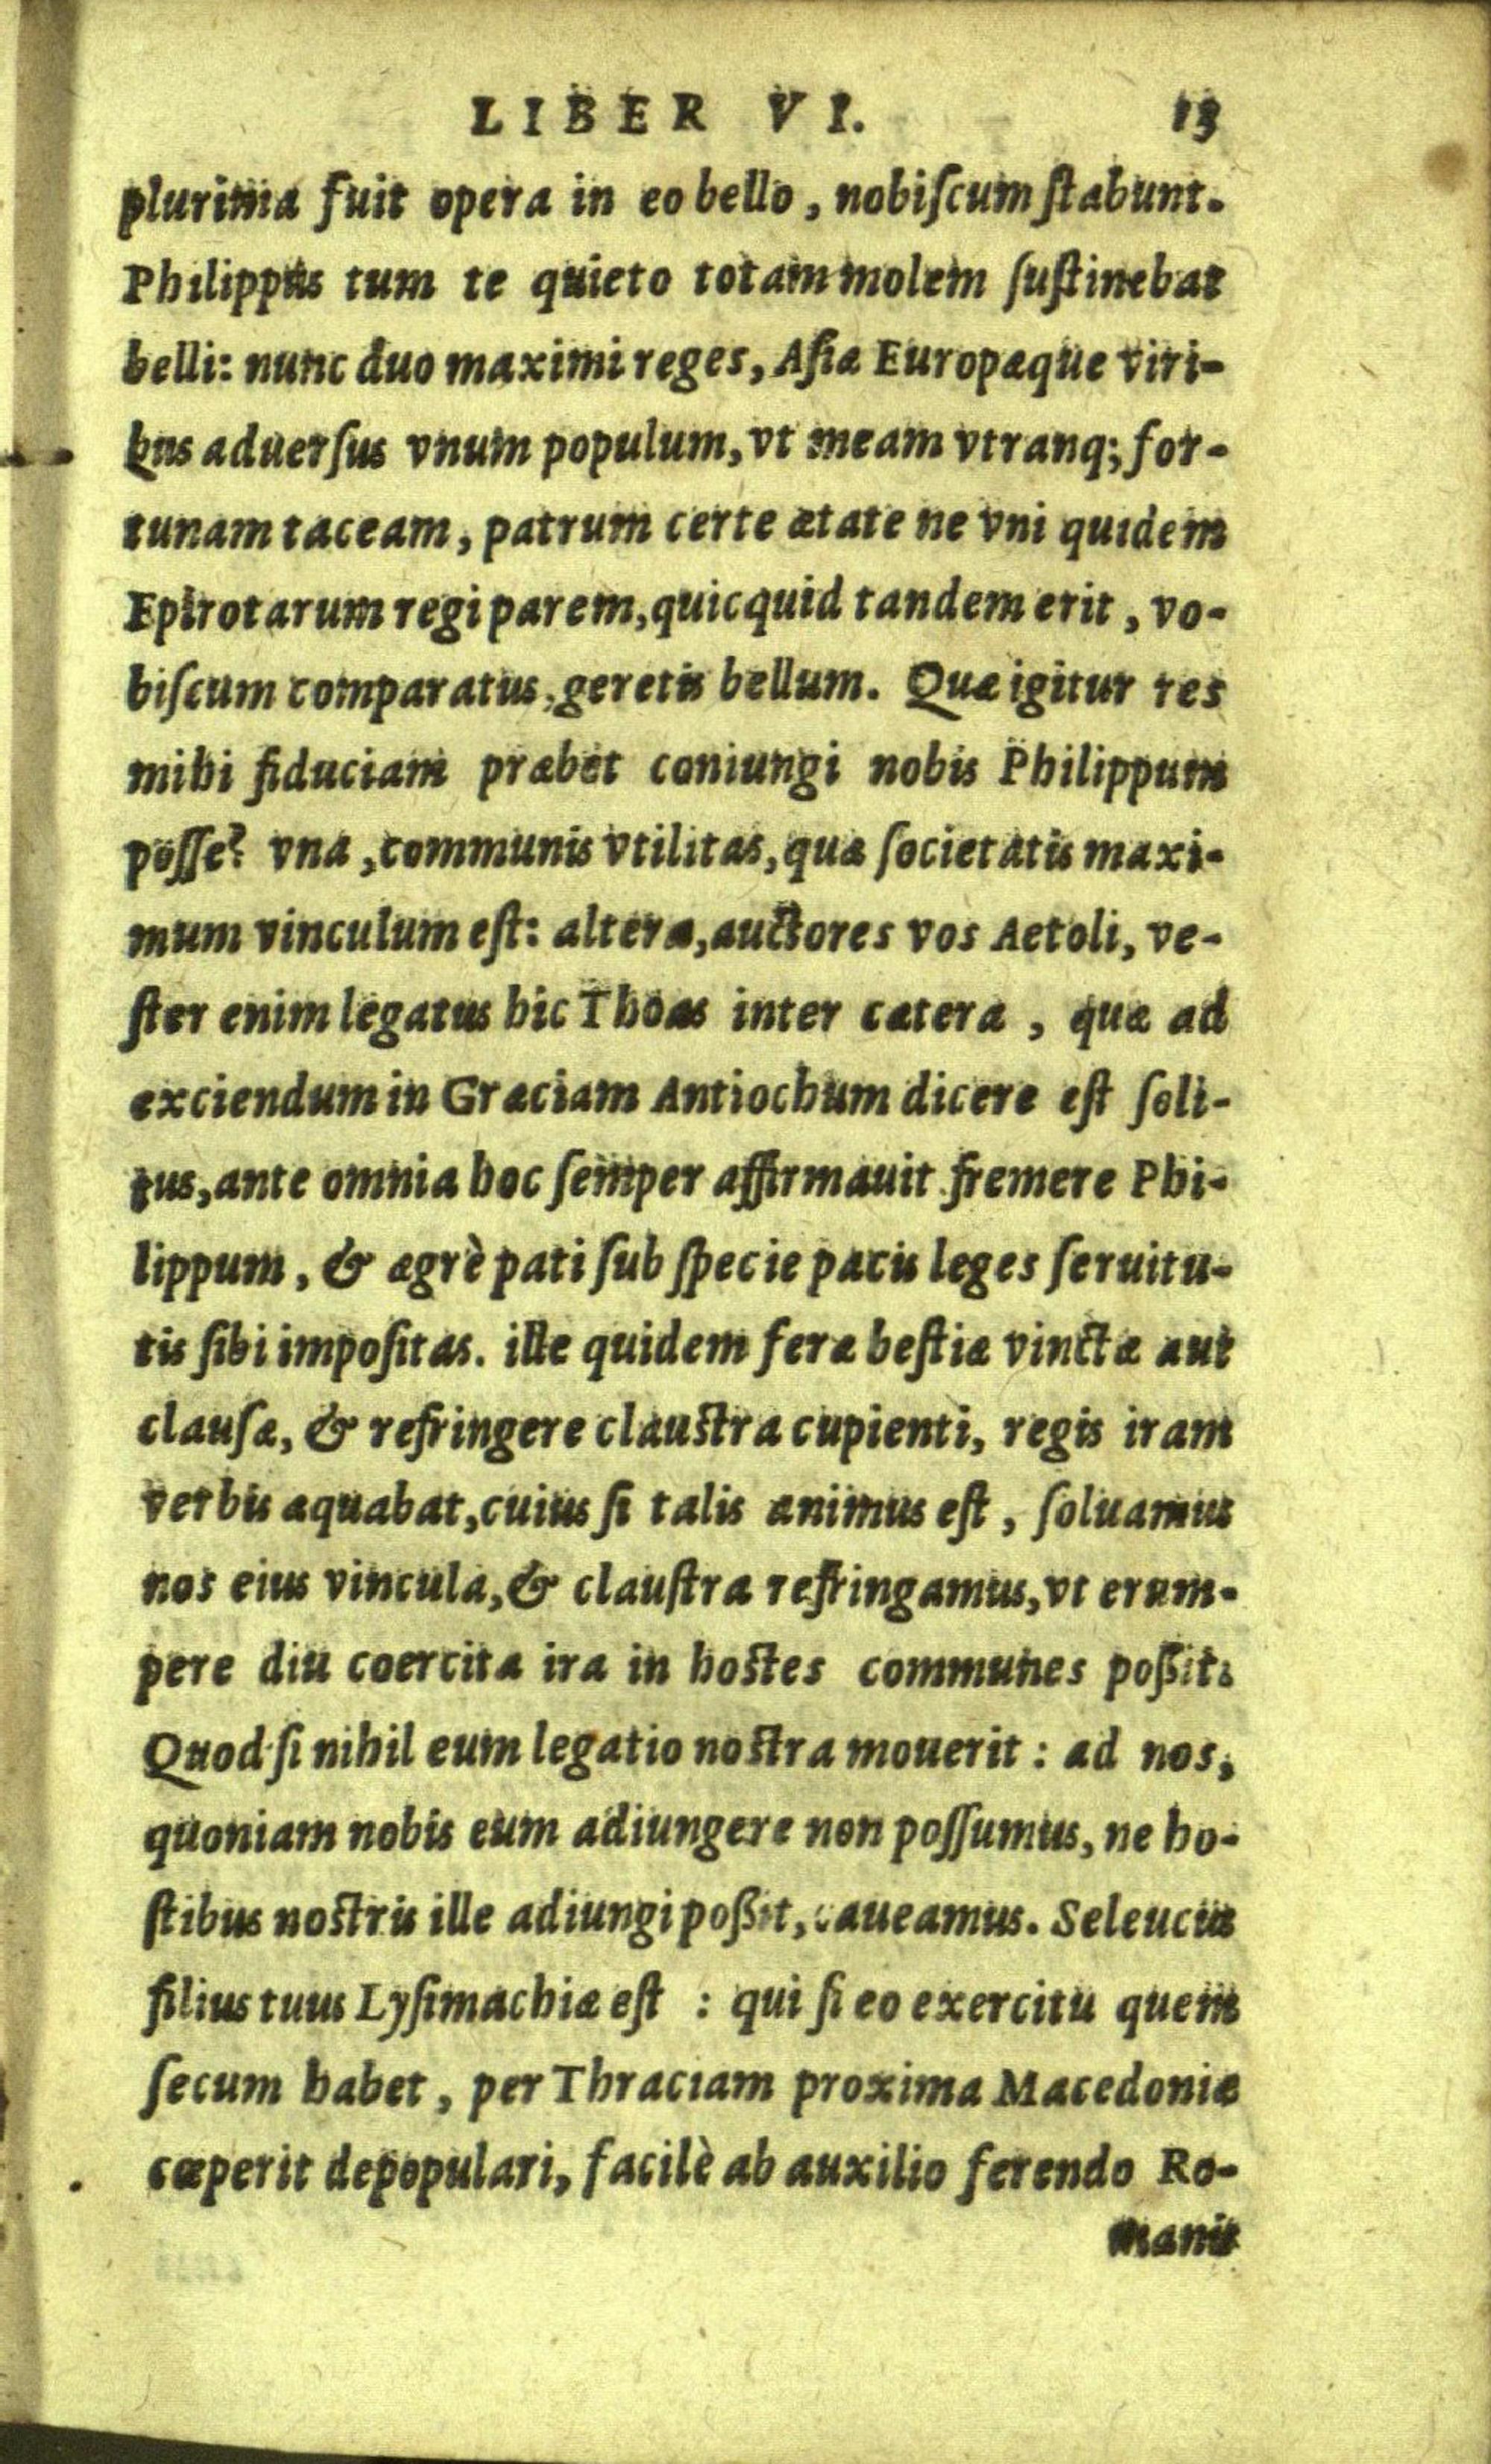 LIBER VI. 13
plurima fuit opera in eo bello, nobiſcum ſtabunt.
Philippus tum te quieto totam molem ſuſtinebat
belli: nunc duo maximi reges, Aſiæ Europæque viri-
bus aduerſus vnum populum, vt meam vtranq; for-
tunam taceam, patrum certe ætate ne vni quidem
Epirotarum regi parem, quicquid tandem erit, vo-
biſcum comparatus, geretis bellum. Quæ igitur res
mihi fiduciam præbet coniungi nobis Philippum
poſſe? vna, communis vtilitas, quæ ſocietatis maxi-
mum vinculum eſt: altera, auctores vos Aetoli, ve-
ſter enim legatus hic Thoas inter cætera, quæ ad
exciendum in Græciam Antiochum dicere eſt ſoli-
tus, ante omnia hoc ſemper affirmauit fremere Phi-
lippum, & ægrè pati ſub ſpecie pacis leges ſeruitu-
tis ſibi impoſitas. ille quidem feræ beſtiæ vinctæ aut
clauſæ, & refringere clauſtra cupienti, regis iram
verbis æquabat, cuius ſi talis animus eſt, ſoluamus
nos eius vincula, & clauſtra refringamus, vt erum-
pere diu coercita ira in hoſtes communes poßit.
Quod ſi nihil eum legatio noſtra mouerit: ad nos,
quoniam nobis eum adiungere non poſſumus, ne ho-
ſtibus noſtris ille adiungi poßit, caueamus. Seleucus
filius tuus Lyſimachiæ eſt : qui ſi eo exercitu quem
ſecum habet, per Thraciam proxima Macedoniæ
cœperit depopulari, facilè ab auxilio ferendo Ro-
manis